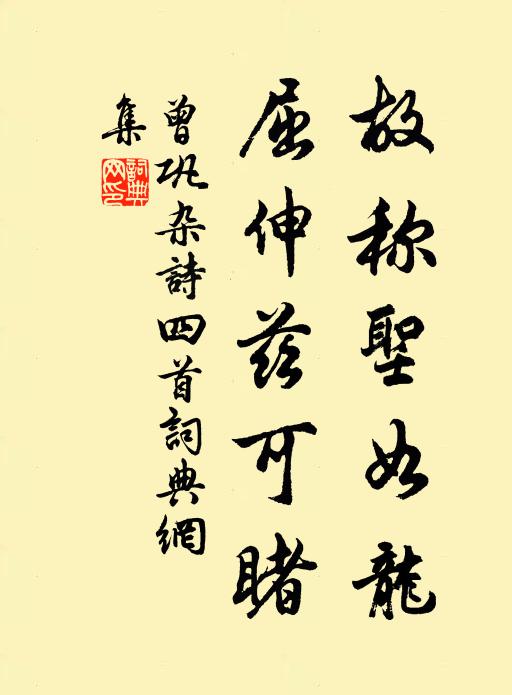 故称聖如龍
屈伸茲可睹
曾巩杂詩四首詞典網
集
詞典網印